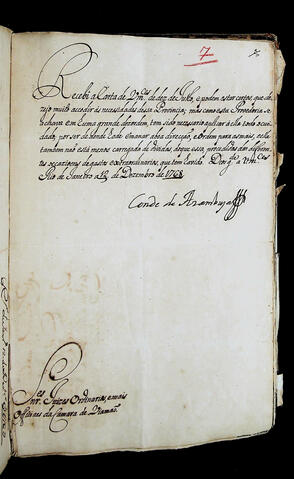 7
Recebi a Carta de Vm.ces de dez de Julho, e podem estar certos, que de-
zejo muito accodir ás necessidades dessa Provincia; mas como esta Provedoria se
achava em huma grande desordem, tem sido necessario aplicar a ella todo o cui-
dado, por ser de donde hade emanar a boa direcção, e ordem para as mais, e ella
tambem não está menos carregada de dividas, do que essa, procedidas das differen-
tes occazioens de gastos extraordinarios, que tem havido. Deos g.de a Vm.ces
Rio de Janeiro a 12 de Dezembro de 1768
Conde de Azambuja
S.es
Snr. Juizes Ordinarios, e mais
Officiaes da Camara de Viamaõ.